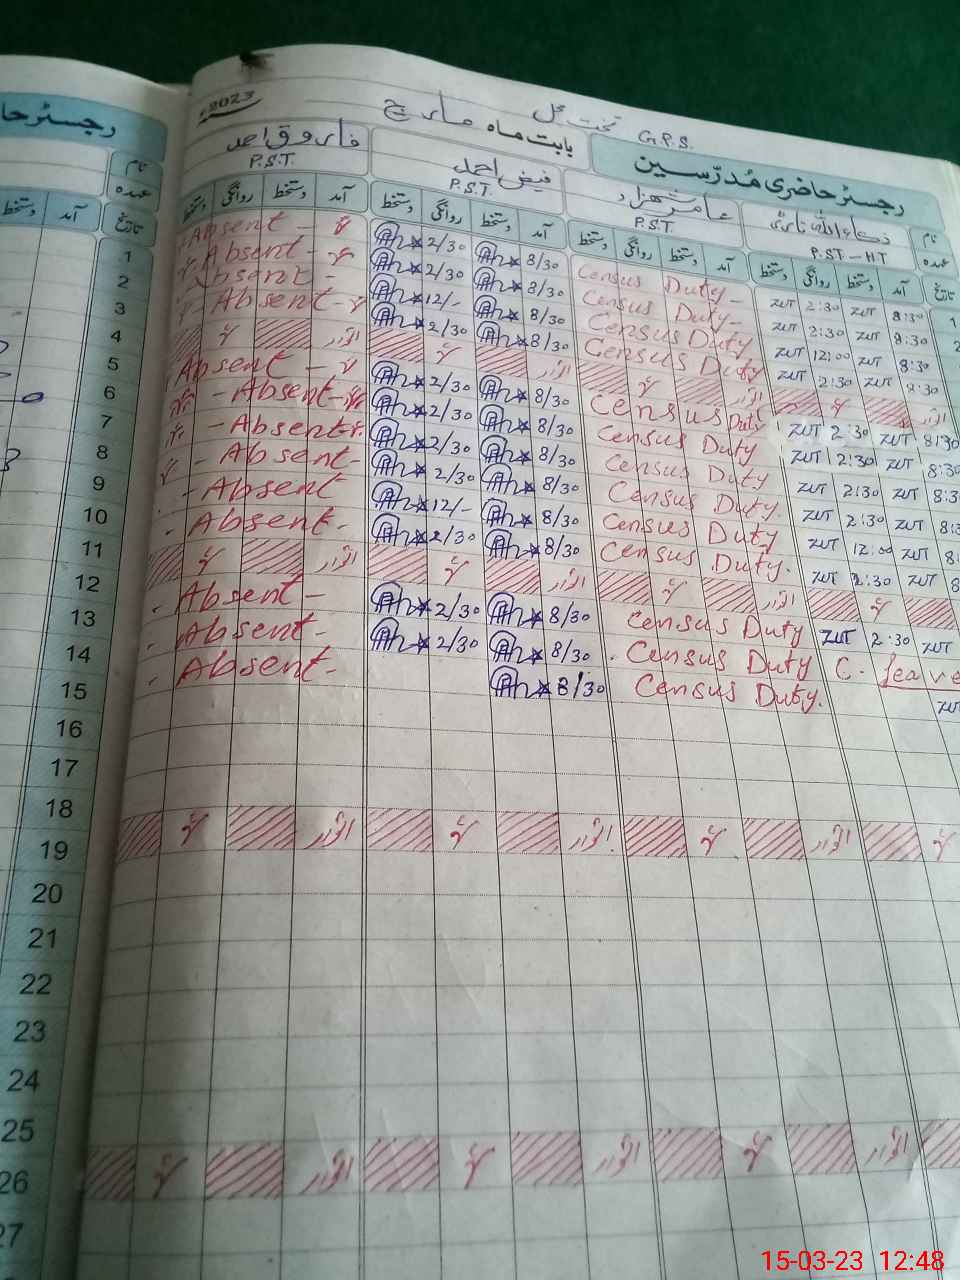 2023ء
G.P.S. تخت محل
بابت ماہ مارچ
رجسٹر حاضری مُدرّسین
رجسٹر حا
نام ذکاء اللہ عامر شہزاد فیض احمد فاروق احمد
عہدہ P.S.T-H.T P.S.T. P.S.T. P.S.T.
نام
عہدہ
تاریخ آمد دستخط روانگی دستخط آمد دستخط روانگی دستخط آمد دستخط روانگی دستخط آمد دستخط روانگی دستخط
تاریخ آمد دستخط
1 Absent - 2/30 8/30 Census Duty - ZUT 2:30 ZUT 8:30
2 Absent - 2/30 8/30 Census Duty - ZUT 2:30 ZUT 8:30
3 Absent - 12/- 8/30 Census Duty ZUT 12:00 ZUT 8:30
4 Absent - 2/30 8/30 Census Duty ZUT 2:30 ZUT 8:30
5 اتوار اتوار اتوار اتوار
6 Absent - 2/30 8/30 Census Duty ZUT 2:30 ZUT 8:30
7 - Absent - 2/30 8/30 Census Duty ZUT 2:30 ZUT 8:30
8 - Absent 2/30 8/30 Census Duty ZUT 2:30 ZUT 8:3
9 - Absent - 2/30 8/30 Census Duty. ZUT 2:30 ZUT 8:
10 - Absent 12/- 8/30 Census Duty ZUT 12:00 ZUT 8:
11 - Absent - 2/30 8/30 Census Duty. ZUT 2:30 ZUT 8
12 اتوار اتوار اتوار
13 - Absent - 2/30 8/30 Census Duty ZUT 2:30 ZUT
14 - Absent - 2/30 8/30 Census Duty C. leave
15 - Absent - 8/30 Census Duty. ZUT
16
17
18
19 اتوار اتوار اتوار
20
21
22
23
24
25
26 اتوار اتوار اتوار
27
15-03-23 12:48